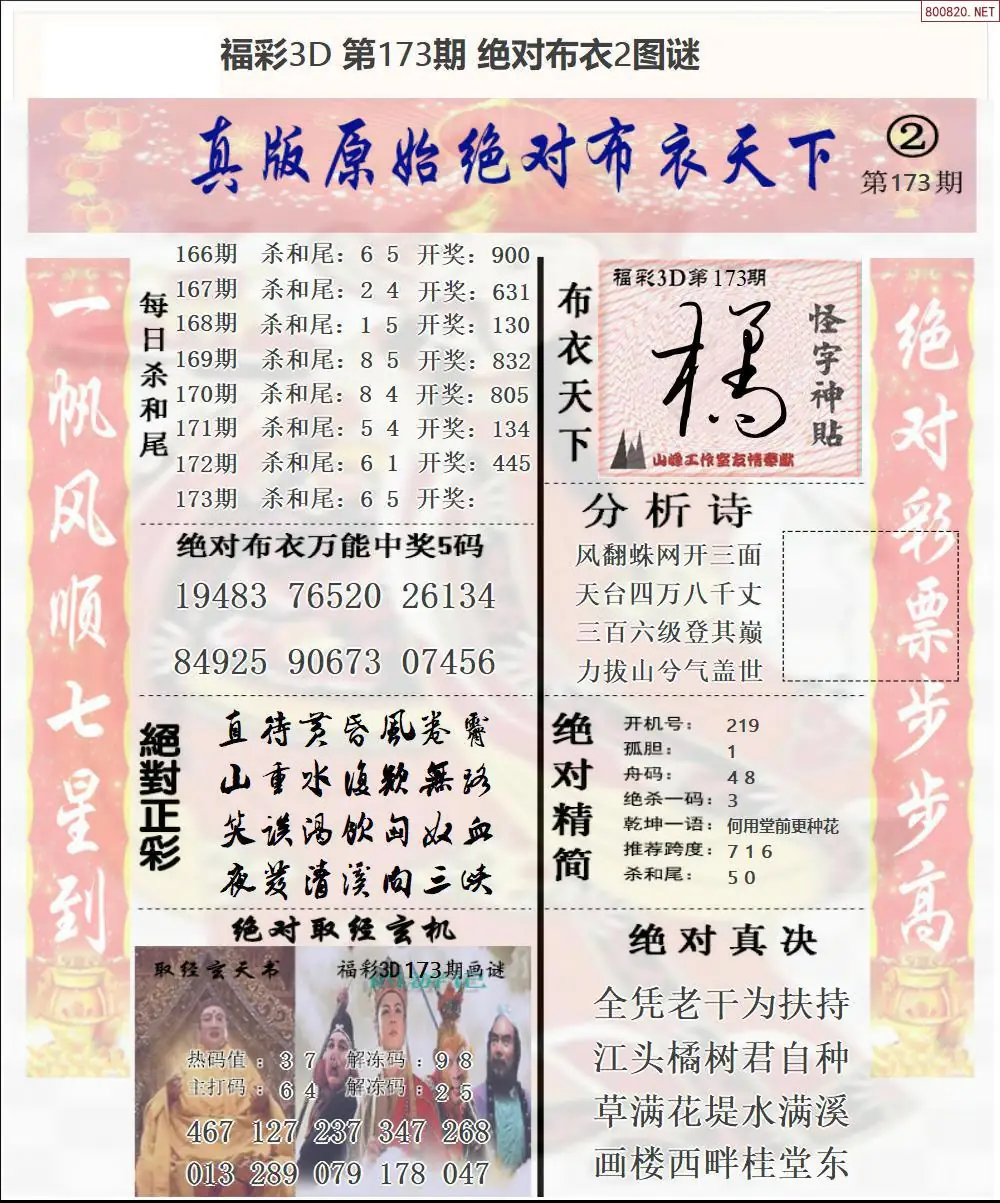 800820.NET
福彩3D 第173期 绝对布衣2图谜
真版原始绝对布衣天下
②
第173期
一帆风顺七星到
每日杀和尾
166期 杀和尾：6 5 开奖：900
167期 杀和尾：2 4 开奖：631
168期 杀和尾：1 5 开奖：130
169期 杀和尾：8 5 开奖：832
170期 杀和尾：8 4 开奖：805
171期 杀和尾：5 4 开奖：134
172期 杀和尾：6 1 开奖：445
173期 杀和尾：6 5 开奖：
绝对布衣万能中奖5码
19483 76520 26134
84925 90673 07456
絕對正彩
直待黄昏風卷霽
山重水復歎無路
笑谈渴饮匈奴血
夜发清溪向三峡
绝对取经玄机
取经玄天书
福彩3D173期画谜
热码值：3 7 解冻码：9 8
主打码：6 4 解冻码：2 5
467 127 237 347 268
013 289 079 178 047
布衣天下
福彩3D第173期
橘
怪字神貼
山峰工作室友情奉献
分析诗
风翻蛛网开三面
天台四万八千丈
三百六级登其巅
力拔山兮气盖世
绝对精简
开机号：219
孤胆：1
舟码：4 8
绝杀一码：3
乾坤一语：何用堂前更种花
推荐跨度：7 1 6
杀和尾：5 0
绝对真决
全凭老干为扶持
江头橘树君自种
草满花堤水满溪
画楼西畔桂堂东
绝对彩票步步高